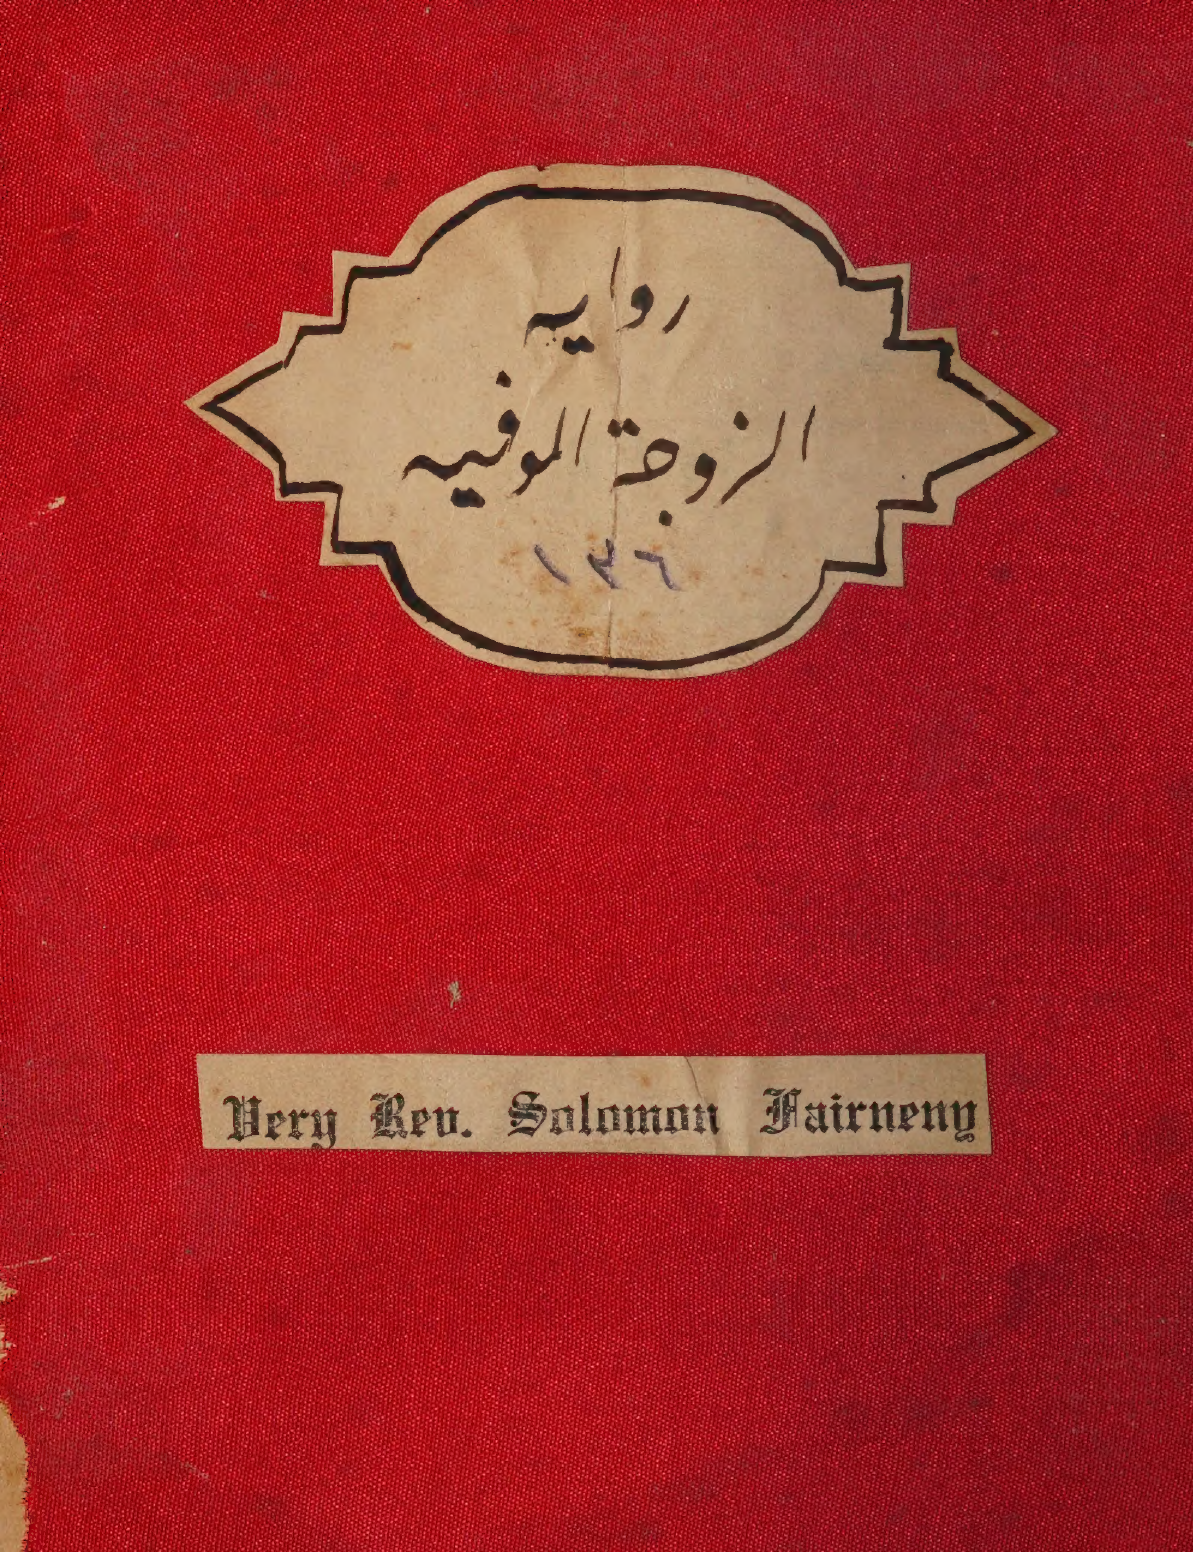 روايه
الزوجة الموفيه
١٣٦
Very Rev. Solomon Fairneny